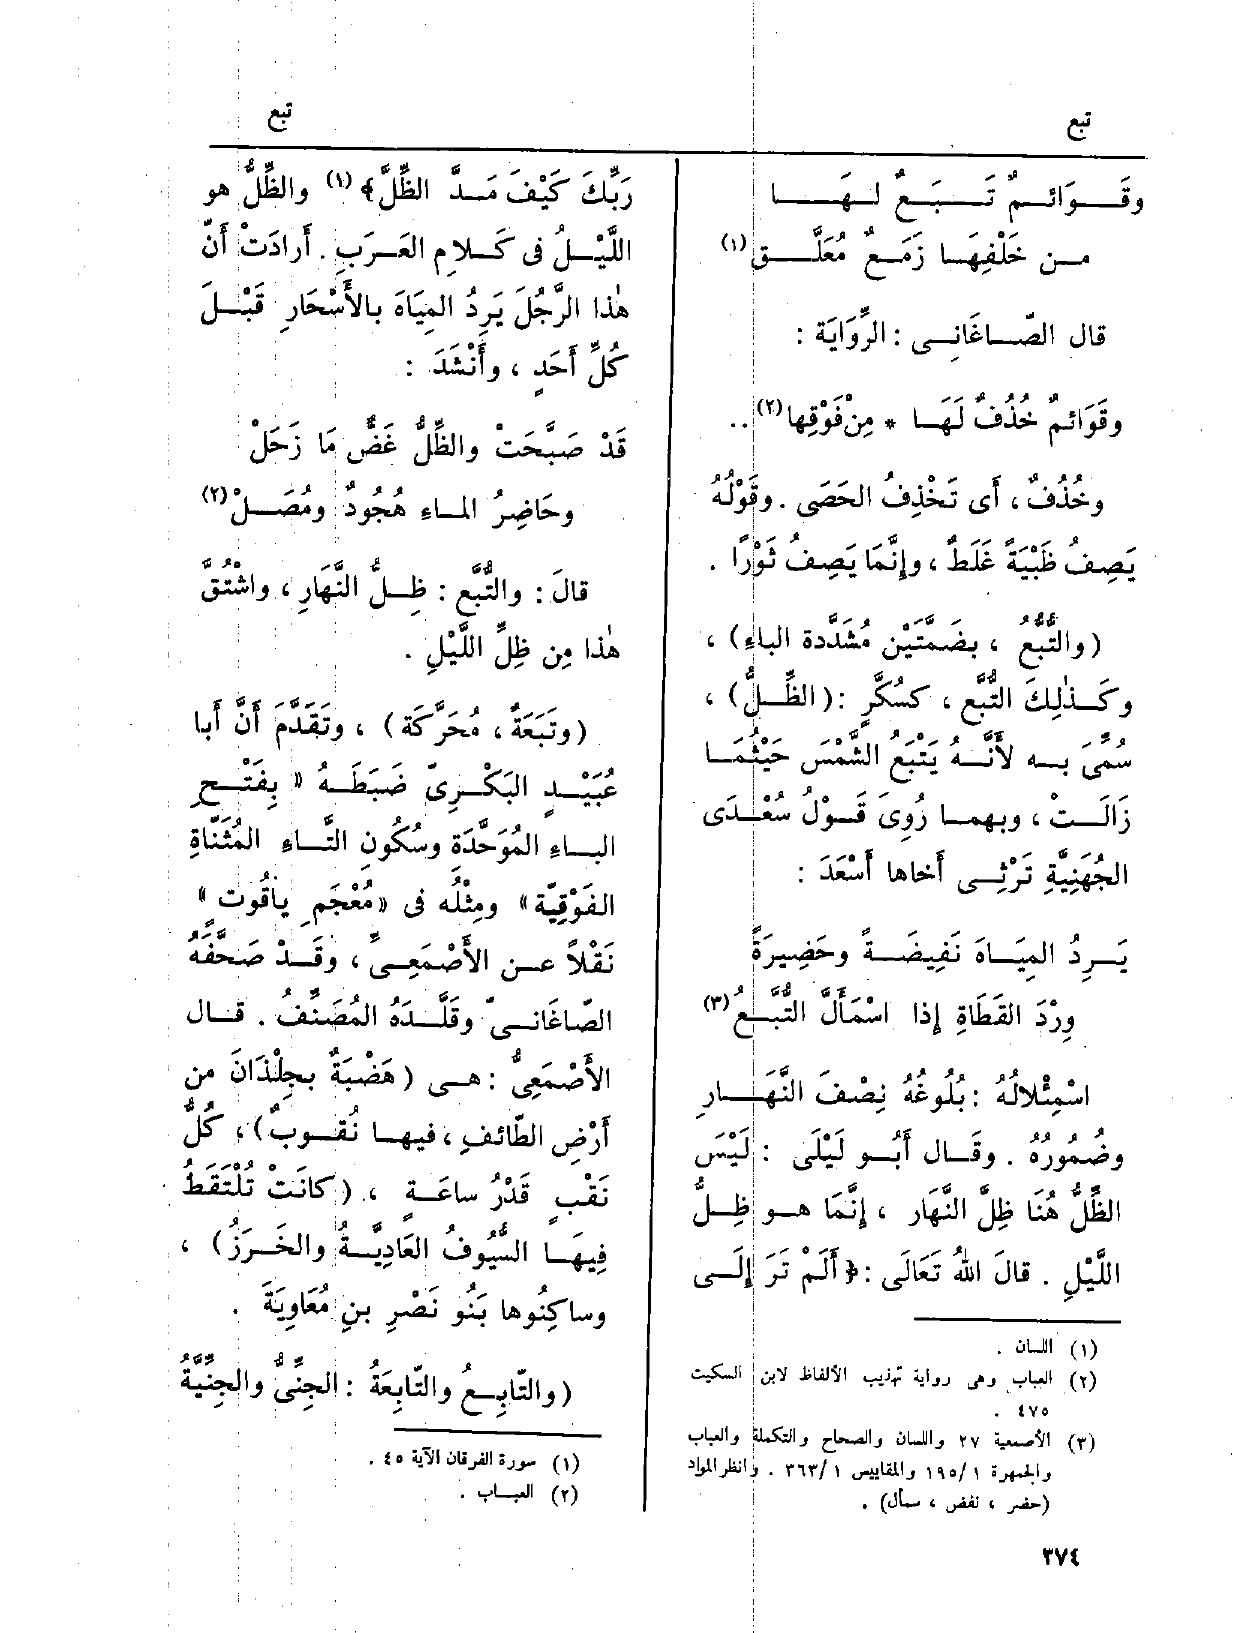 تبع
تبع
وقَـوَائـمٌ تَـبَـعٌ لـهَـا
مـن خَلْفِهَـا زَمَـعٌ مُعَلَّـق(١)
قال الصّـاغَانِـى : الرِّوَايَة :
وقَوَائمٌ خُذُفٌ لَهَـا * مِنْ فَوْقِها(٢)..
وخُذُفٌ ، أَى تَخْذِفُ الحَصَى . وقَوْلُهُ
يَصِفُ ظَبْيَةً غَلَطٌ ، وإِنَّمَا يَصِفُ ثَوْرًا .
(والتُّبُّعُ ، بضَمَّتَيْن مُشَدَّدة الباءِ) ،
وكَـذٰلِكَ التُّبَّع ، كسُكَّرٍ : (الظِّـلُّ) ،
سُمِّىَ بـه لأَنَّـهُ يَتْبَعُ الشَّمْسَ حَيْثُمَـا
زَالَـتْ ، وبهمـا رُوِىَ قَـوْلُ سُعْـدَى
الجُهَنِيَّةِ تَرْثِـى أَخاها أَسْعَدَ :
يَـرِدُ المِيَـاهَ نَفِيضَـةً وحَضِيرَةً
وِرْدَ القَطَاةِ إِذا اسْمَأَلَّ التُّبَّـعُ(٣)
اسْمِئْلالُهُ : بُلُوغُهُ نِصْفَ النَّهَـارِ
وضُمُورُهُ . وقَـال أَبُـو لَيْلَى : لَيْسَ
الظِّلُّ هُنَا ظِلَّ النَّهَار ، إِنَّمَا هـو ظِـلُّ
اللَّيْلِ . قالَ اللهُ تَعَالَى : ﴿ أَلَمْ تَرَ إِلَـى
(١) اللسان .
(٢) العباب وهى رواية تهذيب الألفاظ لابن السكيت
٤٧٥ .
(٣) الأصمعية ٢٧ واللسان والصحاح والتكملة والعباب
والجمهرة ١/١٩٥ والمقاييس ١/٣٦٣ . وانظر المواد
(حضر ، نفض ، سمأل) .
رَبِّكَ كَيْفَ مَـدَّ الظِّلَّ﴾(١) والظِّلُّ هو
اللَّيْـلُ فى كَـلامِ العَـرَبِ . أَرادَتْ أَنّ
هٰذا الرَّجُلَ يَرِدُ المِيَاهَ بالأَسْحَارِ قَبْـلَ
كُلِّ أَحَدٍ ، وأَنْشَدَ :
قَدْ صَبَّحَتْ والظِّلُّ غَضٌّ مَا زَحَلْ
وحَاضِرُ المـاءِ هُجُودٌ ومُصَـلْ(٢)
قالَ : والتُّبَّع : ظِـلُّ النَّهَارِ ، واشْتُقَّ
هٰذا مِن ظِلِّ اللَّيْلِ .
(وتَبَعَةُ ، مُحَرَّكَة) ، وتَقَدَّمَ أَنَّ أَبا
عُبَيْـدٍ البَكْـرِىّ ضَبَطَـهُ « بِفَتْـحِ
البـاءِ المُوَحَّدَة وسُكُونِ التَّـاءِ المُثَنَّاةِ
الفَوْقِيَّة» ومِثْلُه فى «مُعْجَمِ ياقُوت »
نَقْلاً عـن الأَصْمَعِـىِّ ، وقَـدْ صَحَّفَهُ
الصّاغَانـىّ وقَلَّـدَهُ المُصَنِّفُ . قـال
الأَصْمَعِىُّ : هـى (هَضْبَةٌ بـجِلْذَانَ من
أَرْضِ الطّائفِ ، فيهـا نُقُـوبٌ) ، كُلُّ
نَقْبٍ قَدْرُ ساعَـةٍ ، (كانَتْ تُلْتَقَطُ
فِيهَـا السُّيُوفُ العَادِيَّـةُ والخَـرَزُ) ،
وساكِنُوها بَنُو نَصْرِ بنِ مُعَاوِيَةَ .
(والتّابِـعُ والتّابِعَةُ : الجِنِّىُّ والجِنِّيَّةُ
(١) سورة الفرقان الآية ٤٥ .
(٢) العبـاب .
٣٧٤